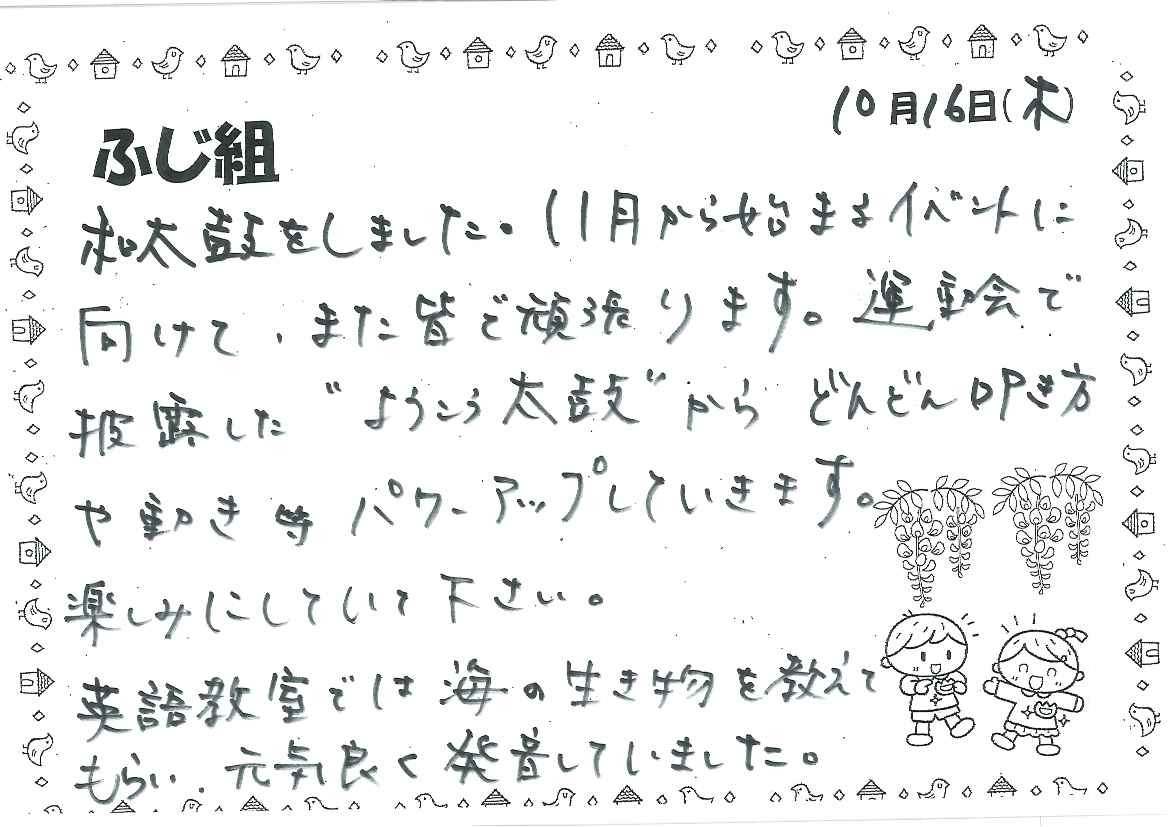 10月16日(木)
ふじ組
和太鼓をしました。11月から始まるイベントに
向けて、また皆で頑張ります。運動会で
披露した“ようこう太鼓”から どんどん叩き方
や動き等 パワーアップしていきます。
楽しみにしていて下さい。
英語教室では海の生き物を教えて
もらい、元気良く発音していました。